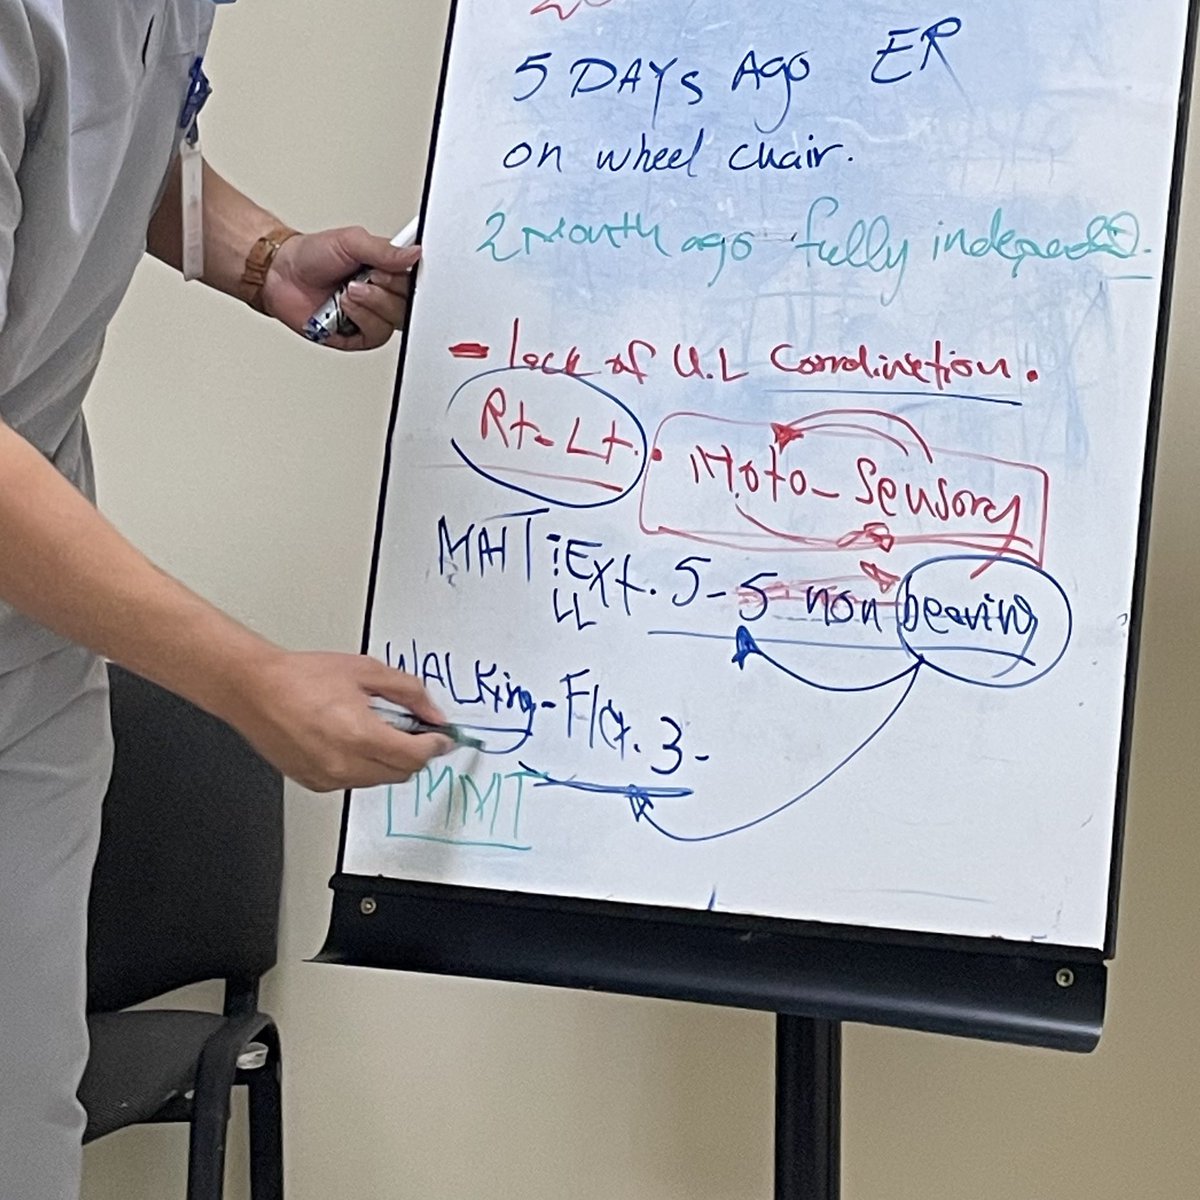 5 DAYs Ago ER
on wheel chair.
2 Month ago fully
- lack of U.L Coordination.
Rt - Lt. • Moto - Sensory
MMT: Ext. 5 - 5 non bearing
LL
WALKing - Flex. 3 -
MMT